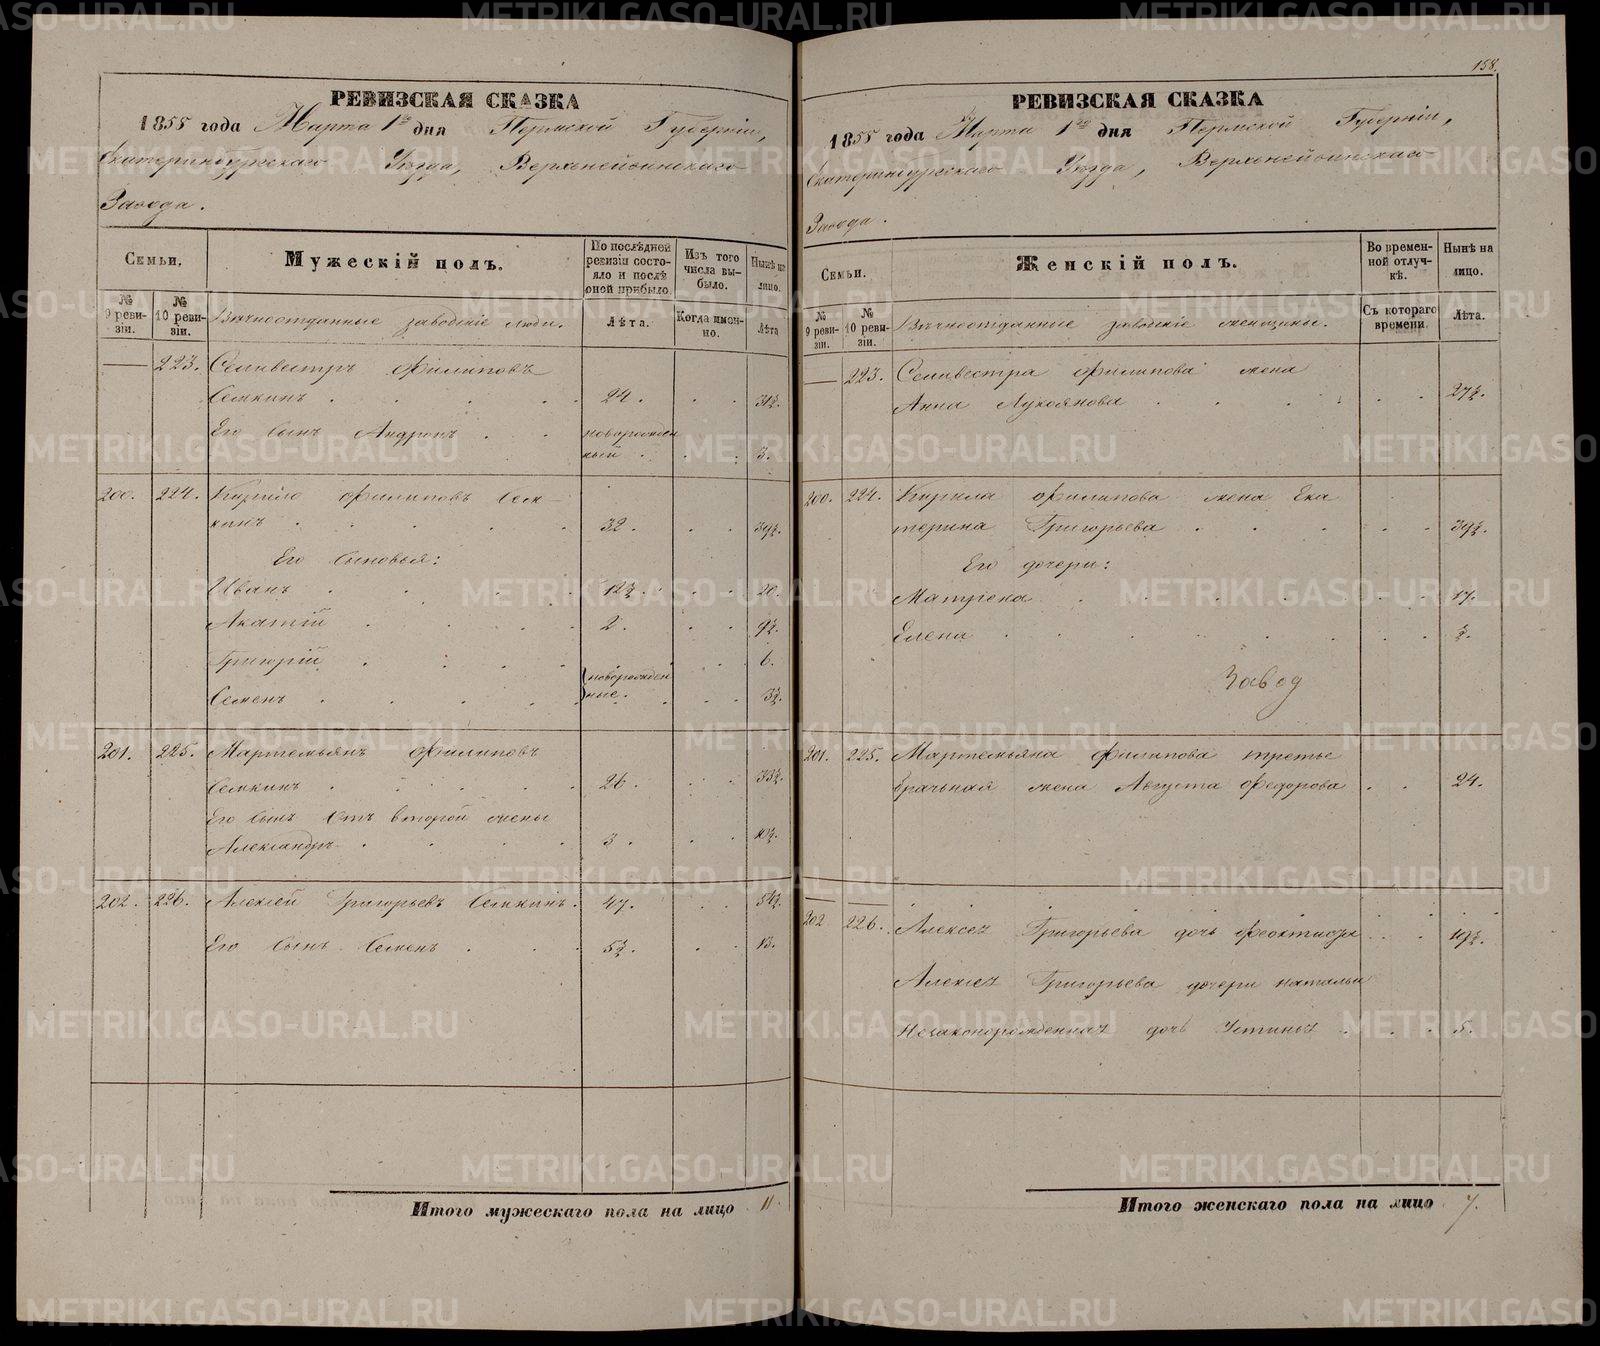 РЕВИЗСКАЯ СКАЗКА
1855 года Марта 1го дня Пермской Губерніи,
Екатеринбургскаго Уезда, Верхнейвинскаго
Завода.
Семьи.
Мужескій полъ.
По послѣдней ревизіи состояло и послѣ оной прибыло.
Изъ того числа выбыло.
Нынѣ на лицо.
№ 9 ревизіи.
№ 10 ревизіи.
Вѣчноотданные заводскіе люди.
Лѣта.
Когда именно.
Лѣта
— 223. Селивестръ Филиповъ
Семкинъ . . . . . 24. . . 31½.
Его сынъ Андронъ . . новорожденный . . . 3.
200. 224. Кирило Филиповъ Сем-
кинъ . . . . . 32. . . 39½.
Его сыновья:
Иванъ . . . . 12½. . . 20.
Акатій . . . . 2. . . 9½.
Григорій . . . . . . 6.
Семенъ . . . . {новорожденные. . . 3½.
201. 225. Мартемьянъ Филиповъ
Семкинъ . . . . . 26. . . 33½.
Его сынъ отъ второй жены
Александръ . . . . 3. . . 10½.
202. 226. Алексѣй Григорьевъ Семкинъ. 47. . . 54½.
Его сынъ Семенъ . . . 5½. . . 13.
Итого мужескаго пола на лицо 11.
158.
РЕВИЗСКАЯ СКАЗКА
1855 года Марта 1го дня Пермской Губерніи,
Екатеринбургскаго Уезда, Верхнейвинскаго
Завода.
Семьи.
Женскій полъ.
Во временной отлучкѣ.
Нынѣ на лицо.
№ 9 ревизіи.
№ 10 ревизіи.
Вѣчноотданные заводскіе женщины.
Съ котораго времени.
Лѣта.
— 223. Селивестра Филипова жена
Анна Лукоянова . . . . . . 27½.
200. 224. Кирила Филипова жена Ека
терина Григорьева . . . . . 39½.
Его дочери:
Матрена . . . . . . 17.
Елена . . . . . . . ½.
Завод
201. 225. Мартемьяна Филипова третье
брачьная жена Августа Федорова . . 24.
202 226. Алексея Григорьева дочь Феоктиста . . 19½.
Алексея Григорьева дочери натальи
Незаконорожденная дочь Устинья . . . 5.
Итого женскаго пола на лицо 7.
METRIKI.GASO-URAL.RU